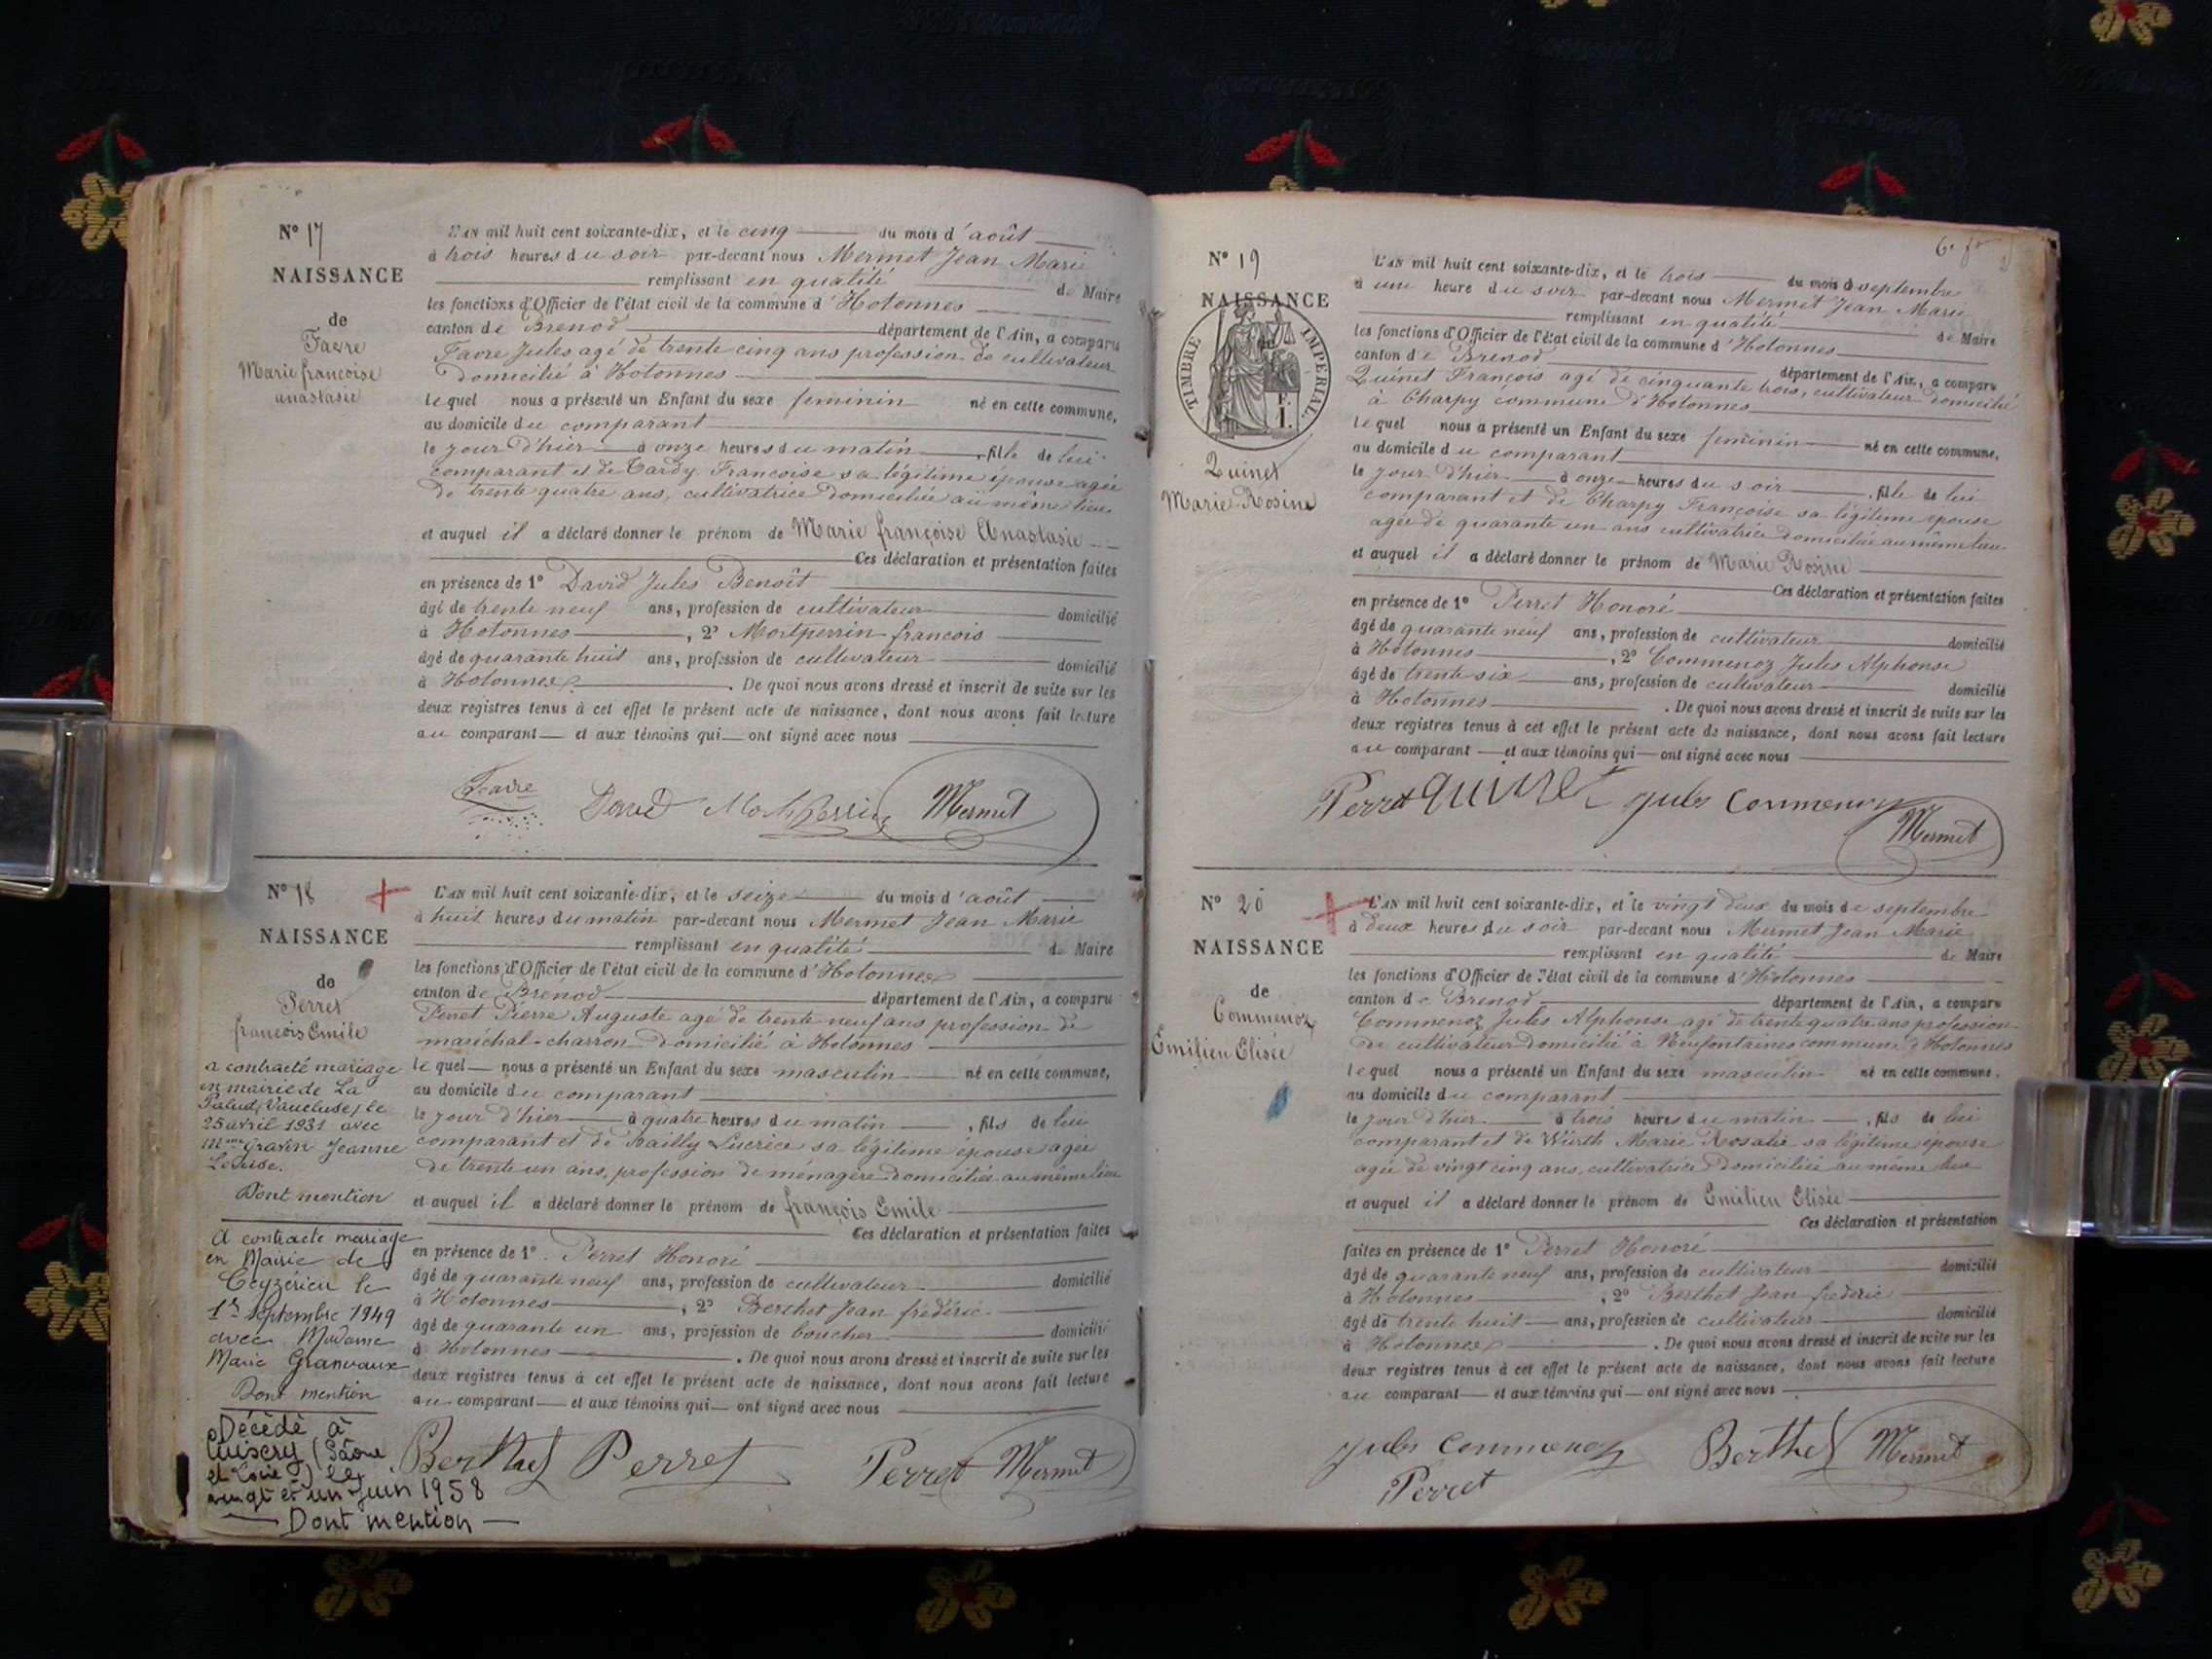 N° 17
NAISSANCE
de
Favre
Marie françoise
anastasie
L'AN mil huit cent soixante-dix, et le cinq du mois d'août
à trois heures du soir par-devant nous Mermet Jean Marie
remplissant en qualité de Maire
les fonctions d'Officier de l'état civil de la commune d'Hotonnes
canton de Brenod département de l'Ain, a comparu
Favre Jules agé de trente cinq ans profession de cultivateur
domicilié à Hotonnes
lequel nous a présenté un Enfant du sexe feminin né en cette commune,
au domicile du comparant
le jour d'hier à onze heures du matin, fille de lui
comparant et de Tardy Francoise sa légitime épouse agée
de trente quatre ans, cultivatrice domiciliée au même lieu
et auquel il a déclaré donner le prénom de Marie françoise Anastasie
Ces déclaration et présentation faites
en présence de 1° David Jules Benoît
âgé de trente neuf ans, profession de cultivateur domicilié
à Hotonnes, 2° Montperrin francois
âgé de quarante huit ans, profession de cultivateur domicilié
à Hotonnes. De quoi nous avons dressé et inscrit de suite sur les
deux registres tenus à cet effet le présent acte de naissance, dont nous avons fait lecture
au comparant et aux témoins qui ont signé avec nous
Favre David Mermet
N° 18
NAISSANCE
de
Perret
francois Emile
a contracté mariage
en mairie de La
Palud (Vaucluse) le
25 avril 1931 avec
Mme Jeanne
Louise.
Dont mention
A contracté mariage
en Mairie de
Ceyzérieu le
1er Septembre 1949
avec Madame
Marie Granvaux
Dont mention
Décédé à
Cuisery (Saône
et Loire) le
vingt et un Juin 1958
Dont mention
L'AN mil huit cent soixante-dix, et le seize du mois d'août
à huit heures du matin par-devant nous Mermet Jean Marie
remplissant en qualité de Maire
les fonctions d'Officier de l'état civil de la commune d'Hotonnes
canton de Brénod département de l'Ain, a comparu
Perret Pierre Auguste agé de trente neuf ans profession de
maréchal-charron domicilié à Hotonnes
lequel nous a présenté un Enfant du sexe masculin né en cette commune,
au domicile du comparant
le jour d'hier à quatre heures du matin, fils de lui
comparant et de Bailly Lucrèce sa légitime épouse agée
de trente un ans, profession de ménagère domiciliée au même lieu
et auquel il a déclaré donner le prénom de françois Emile
Ces déclaration et présentation faites
en présence de 1° Perret Honoré
âgé de quarante neuf ans, profession de cultivateur domicilié
à Hotonnes, 2° Berthet Jean frédéric
âgé de quarante un ans, profession de boucher domicilié
à Hotonnes. De quoi nous avons dressé et inscrit de suite sur les
deux registres tenus à cet effet le présent acte de naissance, dont nous avons fait lecture
au comparant et aux témoins qui ont signé avec nous
Berthet Perret Perret Mermet
N° 19
NAISSANCE
TIMBRE IMPERIAL.
1 F.
Quinet
Marie Rosine
L'AN mil huit cent soixante-dix, et le trois du mois de septembre
à une heure du soir par-devant nous Mermet Jean Marie
remplissant en qualité de Maire
les fonctions d'Officier de l'état civil de la commune d'Hotonnes
canton de Brenod département de l'Ain, a comparu
Quinet François agé de cinquante trois, cultivateur domicilié
à Charpy commune d'Hotonnes
lequel nous a présenté un Enfant du sexe feminin né en cette commune,
au domicile du comparant
le jour d'hier à onze heures du soir, fille de lui
comparant et de Charpy Françoise sa légitime épouse
agée de quarante un ans cultivatrice domiciliée au même lieu
et auquel il a déclaré donner le prénom de Marie Rosine
Ces déclaration et présentation faites
en présence de 1° Perret Honoré
âgé de quarante neuf ans, profession de cultivateur domicilié
à Hotonnes, 2° Commenoz Jules Alphonse
âgé de trente six ans, profession de cultivateur domicilié
à Hotonnes. De quoi nous avons dressé et inscrit de suite sur les
deux registres tenus à cet effet le présent acte de naissance, dont nous avons fait lecture
au comparant et aux témoins qui ont signé avec nous
Perret quinet jules Commenoz
Mermet
N° 20
NAISSANCE
de
Commenoz
Emilien Elisée
L'AN mil huit cent soixante-dix, et le vingt deux du mois de septembre
à deux heures du soir par-devant nous Mermet Jean Marie
remplissant en qualité de Maire
les fonctions d'Officier de l'état civil de la commune d'Hotonnes
canton de Brenod département de l'Ain, a comparu
Commenoz Jules Alphonse agé de trente quatre ans profession
de cultivateur domicilié à Neufontaines commune d'Hotonnes
lequel nous a présenté un Enfant du sexe masculin né en cette commune,
au domicile du comparant
le jour d'hier à trois heures du matin, fils de lui
comparant et de Würth Marie Rosalie sa légitime épouse
agée de vingt cinq ans, cultivatrice domiciliée au même lieu
et auquel il a déclaré donner le prénom de Emilien Elisée
Ces déclaration et présentation
faites en présence de 1° Perret Honoré
âgé de quarante neuf ans, profession de cultivateur domicilié
à Hotonnes, 2° Berthet Jean frederic
âgé de trente huit ans, profession de cultivateur domicilié
à Hotonnes. De quoi nous avons dressé et inscrit de suite sur les
deux registres tenus à cet effet le présent acte de naissance, dont nous avons fait lecture
au comparant et aux témoins qui ont signé avec nous
jules Commenoz Berthet Mermet
Perret